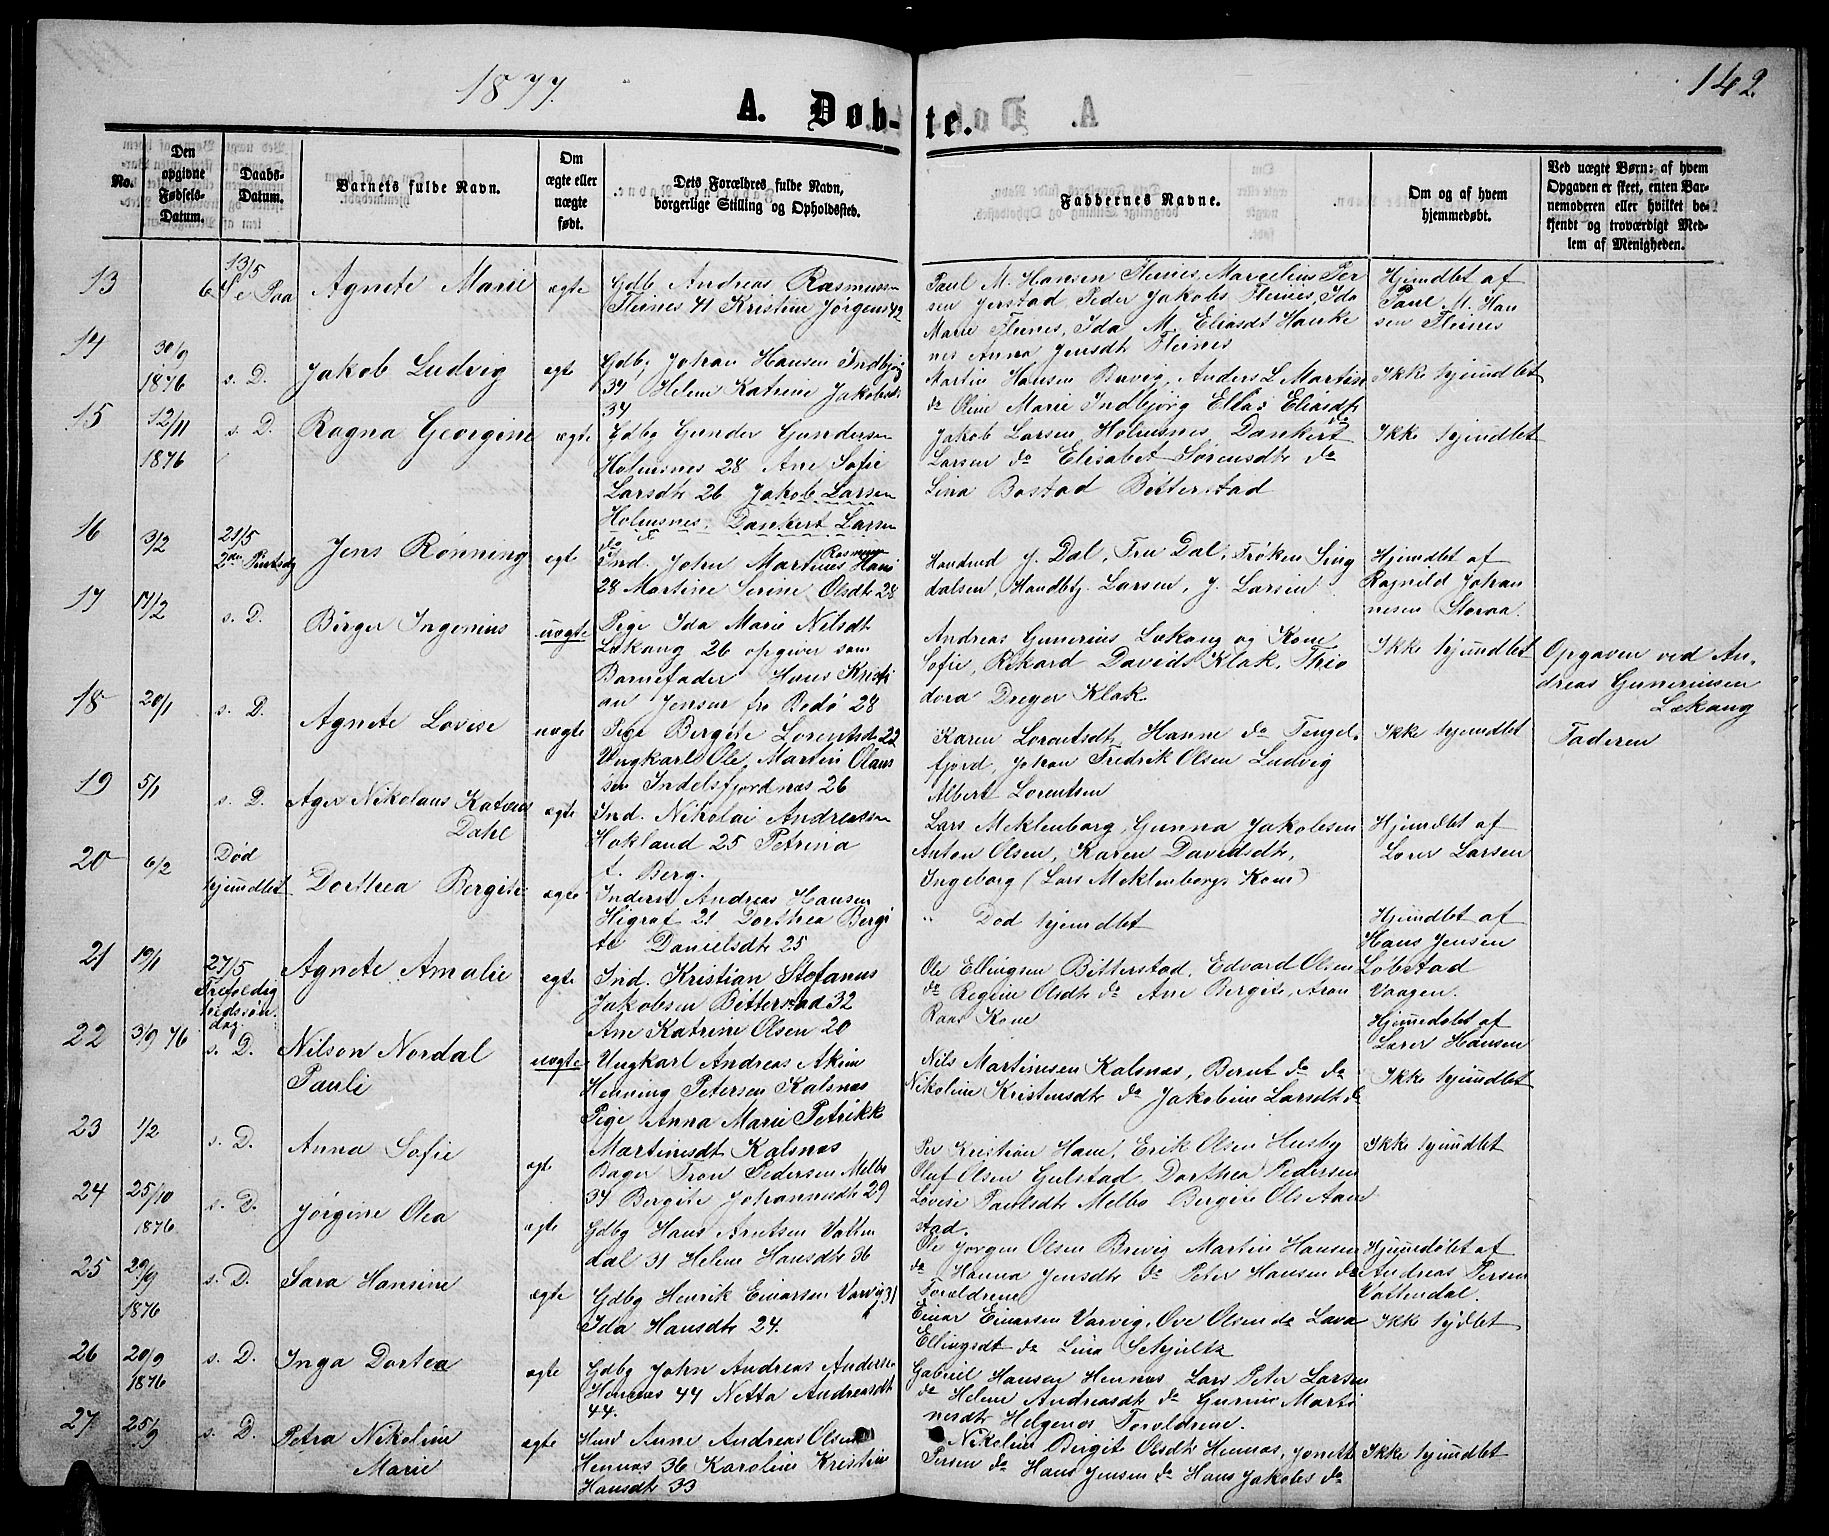 1877.
142.
A. Døb-
te.
No.
Den opgivne Fødsels-Datum.
Daabs-Datum.
Barnets fulde Navn.
Om ægte eller uægte født.
Dets Forældres fulde Navn, borgerlige Stilling og Opholdssted.
Faddernes Navne.
Om og af hvem hjemmedøbt.
Ved uægte Børn: af hvem Opgaven er skeet, enten Barnemoderen eller hvilket bekjendt og troværdigt Medlem af Menigheden.
13
13/5
6te e Paa
Agnete Marie
ægte
Gdb Andreas Rasmussen
Fleines 41 Kristine Jørgens 42
Paul M. Hansen Fleines, Margelius Per
sen Jerstad, Peder Jakobs Fleines, Ida
Marie Fleines, Ida M. Eliasdt Hauke
nes Anna Jensdt Fleines
Hjemdbt af
Paul M. Han
sen Fleines
14
30/9
1876
s. D.
Jakob Ludvig
ægte
Gdbg Johan Hansen Indbjørg
39 Helene Katrine Jakobsdt
34
Martin Hansen Buvig, Anders L Martin
do Oline Marie Indbjørg Ellas Eliasdt
do
Ikke hjemdbt
15
12/11
1876
s. D.
Ragna Georgine
ægte
Gdbg Gunder Gundersen
Holmsnes 28 Ane Sofie
Larsdt 26 Jakob Larsen
Holmsnes, Dankert Larsen
do
Jakob Larsen Holmsnes, Dankert
Larsen do Elisabet Sørensdt do
Lina Bostad Bitterstad
Ikke hjemdbt
16
3/2
21/5
2den Pintsdg
Jens Rønning
ægte
Ind. John Martinus Rasmus Hans
28 Martine Serine Olsdt 28
Handmd J. Dal, Fru Dal, Frøken Sing
dalsen, Handbtj. Larsen, J. Larsen
Hjemdbt af
Ragnild Johan
nesen Storaa.
17
17/2
s. D.
Birger Ingenius
uægte
Pige Ida Marie Nilsdt
Lekang 26 opgiver som
Barnefader Hans Kristi
an Jensen fra Bodø 28
Andreas Gunerius Lekang og Kone
Sofie, Rikard Davids Klak, Theo
dora Dreyer Klak
Ikke hjemdbt
Opgaven ved An,
dreas Guneriusen
Lekang
18
20/1
s. D.
Agnete Lovise
uægte
Pige Bergite Lorentsdt 22
Ungkarl Ole Martin Olaus
sen Indelsfjordnes 26
Karen Lorentsdt, Hanne do Tengel
fjord, Johan Fredrik Olsen Ludvig
Albert Lorentsen
Ikke hjemdbt
Faderen
19
5/1
s. D.
Ager Nikolaus
Dahl
ægte
Ind. Nikolai Andreassen
Hokland 25 Petrina
f. Berg.
Lars Meklenborg, Gunna Jakobsen
Anton Olsen, Karen Davidsdt,
Ingeborg (Lars Meklenborgs Kone)
Hjemdbt af
Lærer Larsen
20
6/2
Død
hjemdbt
Dorthea Bergite
ægte
Inderst Andreas Hansen
Higraf 21 Dorthea Bergi
te Danielsdt 25
" Død hjemdbt
Hjemdbt af
Hans Jensen
Løbstad
Vaagen.
21
19/1
27/5
Trefoldig
hedssøn
dag
Agnete Amalie
ægte
Ind. Kristian Stefanus
Jakobsen Bitterstad 32
Ane Katrine Olsen 20
Ole Ellingsen Bitterstad, Edvard Olsen
do Regine Olsdt do Ane Bergite, Aron
Raas Kone
Hjemmedøbt af
Lærer Hansen
22
3/9 76
s. D.
Nilson Nordal
Pauli
uægte
Ungkarl Andreas Akim
Henning Petersen Kalsnes
Pige Anna Marie Petrikk
Martinsdt Kalsnes
Nils Martinusen Kalsnæs, Bernt do do
Nikoline Kristensdt do Jakobine Larsdt do
Ikke hjemdbt
23
1/2
s. D.
Anna Sofie
ægte
Bager Tron Pedersen Melbo
34 Bergite Johannesdt 29
Per Kristian Hane, Erik Olsen Husby
Oluf Olsen Gulstad, Dorthea Pedersen
Lovise Paulsdt Melbo Bergite Ols Aam
stad.
Ikke hjemdbt
24
25/10
1876
s. D.
Jørgine Olea
ægte
Gdbg Hans Arntsen Vatten
dal 31 Helene Hansdt 36
Ole Jørgen Olsen Brevig Martin Hansen
do Hanna Jensdt do Peter Hansen do
Forældrene
Hjemmedøbt af
Andreas Persen
Vattendal.
25
29/9
1876
s. D.
Sara Hansine
ægte
Gdbg Henrik Einarsen Varvig 31
Ida Hansdt 24.
Einar Einarsen Varvig, Ove Olsen do Lava
Ellingsdt do Lina Schjultz
Ikke hjdbt
26
20/9
1876
s. D.
Inga Dortea
ægte
Gdbg John Andreas Anders
Hennes 44 Netta Andreasdt
44.
Gabriel Hansen Hennes, Lars Peter Larsen
do Helene Andreasdt do Gurine Marti
nesdt Helgenes Foreldrene.
27
25/9
s. D.
Petra Nikoline
Marie
ægte
Husd Anne Andreas Olsen
Hennes 36 Karoline Kristin
Hansdt 33
Nikoline Birgit Olsdt Hennes, Jonette
Persen do Hans Jensen do Hans Jakobs do
Ikke hjemdbt